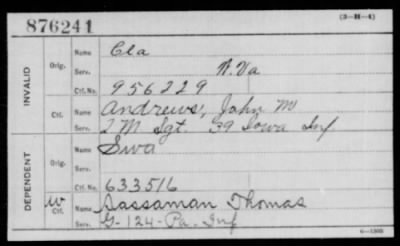 876241 (3-M-4)
INVALID
Orig.
Name Cla
Serv. W. Va
Ctf. No. 956229
Ctf.
Name Andrews, John M
Serv. 2 M Sgt. 39 Iowa Inf
DEPENDENT
Orig.
Name Swa
Serv.
Ctf. No. 633516
W
Ctf.
Name Sassaman Thomas
Serv. G-124-Pa. Inf